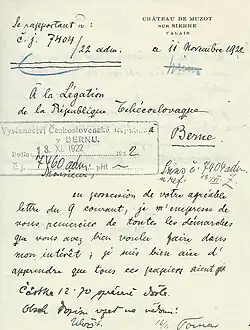 se rapportant à :
č. j. 7404/22 adm.
CHÂTEAU DE MUZOT
SUR SIERRE
VALAIS
a 11 Novembre 1922
A la Légation
de la République Tchécoslovaque
Berne
Vyslanectví Československé Republiky
v BERNU.
13. XI. 1922
7460 adm.
Monsieur
en possession de votre agréable
lettre du 9 courant, je m'empresse de
vous remercier de toutes les démarches
que vous avez bien voulu faire dans
mon intérêt ; je suis bien aise d'
apprendre que tous ces papiers ainsi que